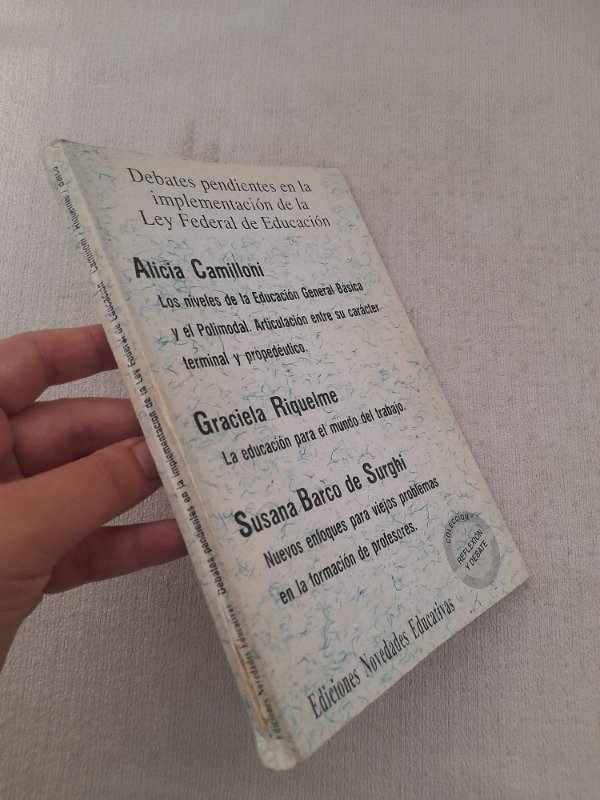 Debates pendientes en la
implementación de la
Ley Federal de Educación
Alicia Camilloni
Los niveles de la Educación General Básica
y el Polimodal. Articulación entre su carácter
terminal y propedéutico.
Graciela Riquelme
La educación para el mundo del trabajo.
Susana Barco de Surghi
Nuevos enfoques para viejos problemas
en la formación de profesores.
COLECCION
REFLEXIÓN
Y DEBATE
Ediciones Novedades Educativas
Ediciones Novedades Educativas Debates pendientes en la implementación de la Ley Federal de Educación Camilloni / Riquelme / Barco